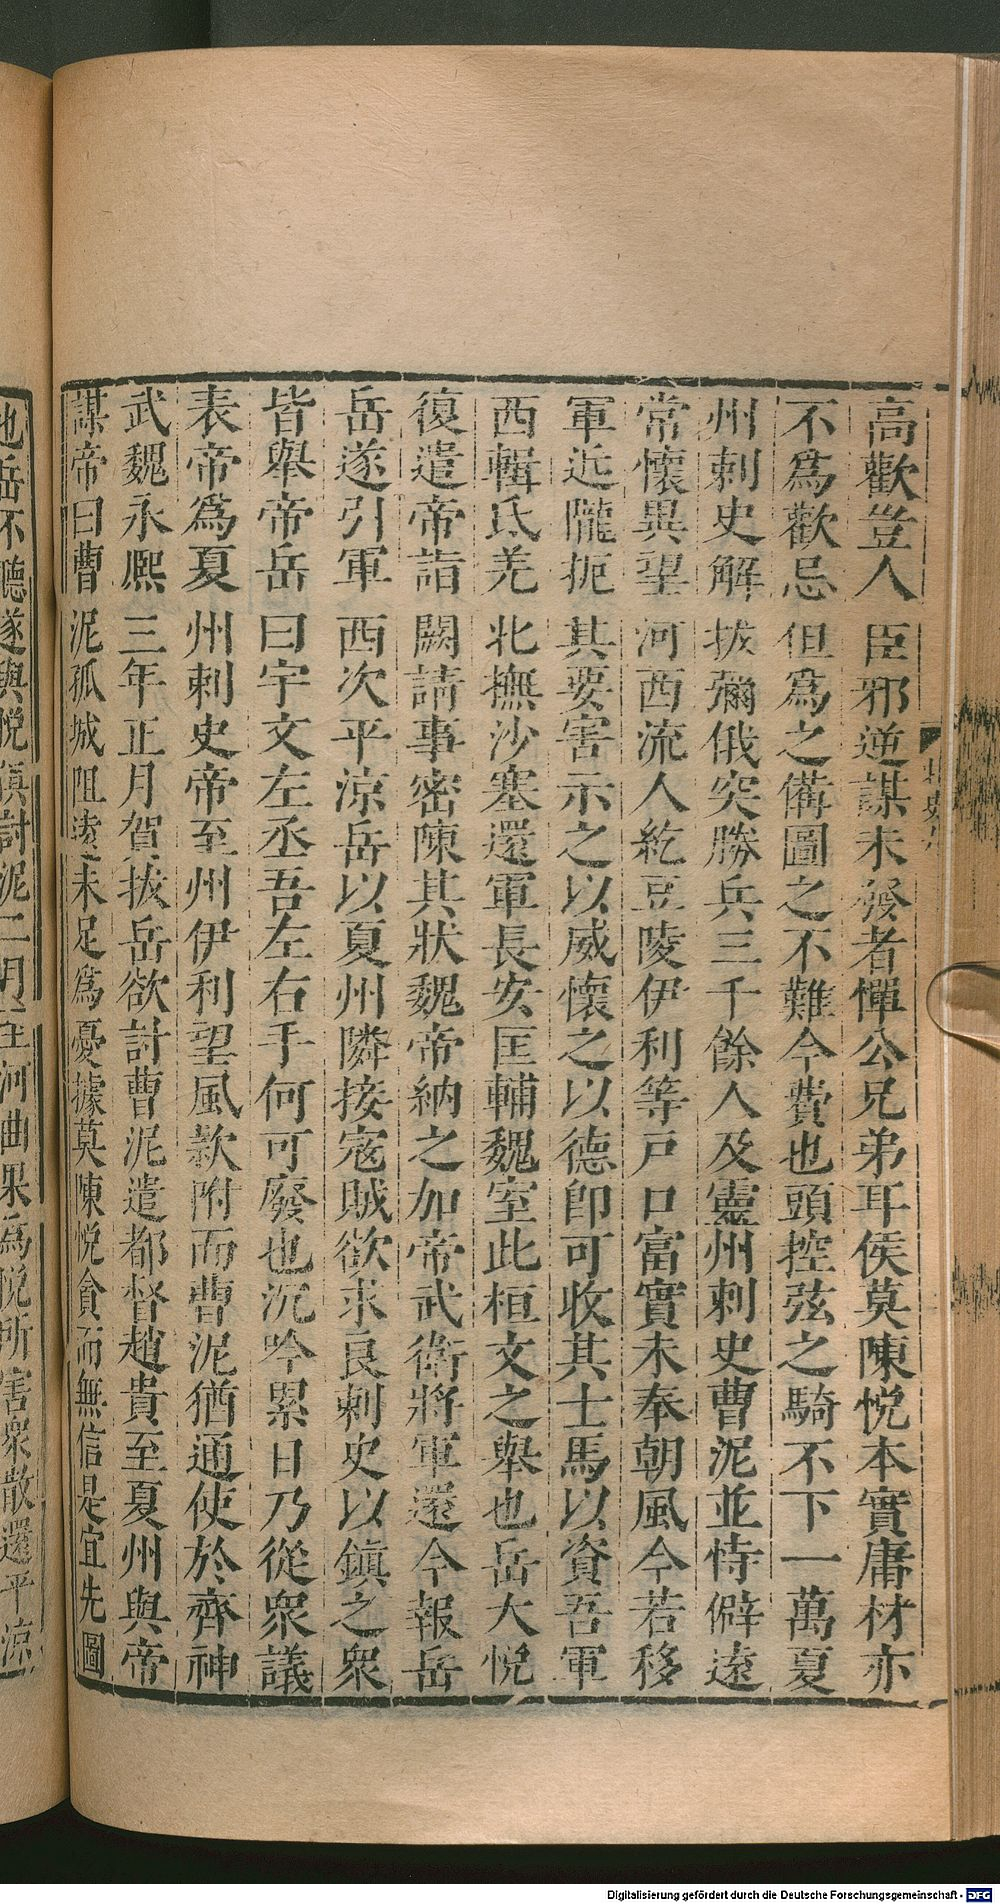 高歡豈人臣邪逆謀未發者憚公兄弟耳侯莫陳悅本實庸材亦
不爲歡忌但爲之備圖之不難今費也頭控弦之騎不下一萬夏
州刺史解拔彌俄突勝兵三千餘人及靈州刺史曹泥並恃僻遠
常懷異望河西流人紇豆陵伊利等戶口富實未奉朝風今若移
軍近隴扼其要害示之以威懷之以德卽可收其士馬以資吾軍
西輯氐羌北撫沙塞還軍長安匡輔魏室此桓文之舉也岳大悅
復遣帝詣闕請事密陳其狀魏帝納之加帝武衛將軍還令報岳
岳遂引軍西次平涼岳以夏州隣接寇賊欲求良刺史以鎮之衆
皆舉帝岳曰宇文左丞吾左右手何可廢也沉吟累日乃從衆議
表帝爲夏州刺史帝至州伊利望風款附而曹泥猶通使於齊神
武魏永熙三年正月賀拔岳欲討曹泥遣都督趙貴至夏州與帝
謀帝曰曹泥孤城阻遠未足爲憂據莫陳悅貪而無信是宜先圖
也岳不聽遂與悅俱討泥二月至河曲果爲悅所害衆散還平涼
Digitalisierung gefördert durch die Deutsche Forschungsgemeinschaft - DFG